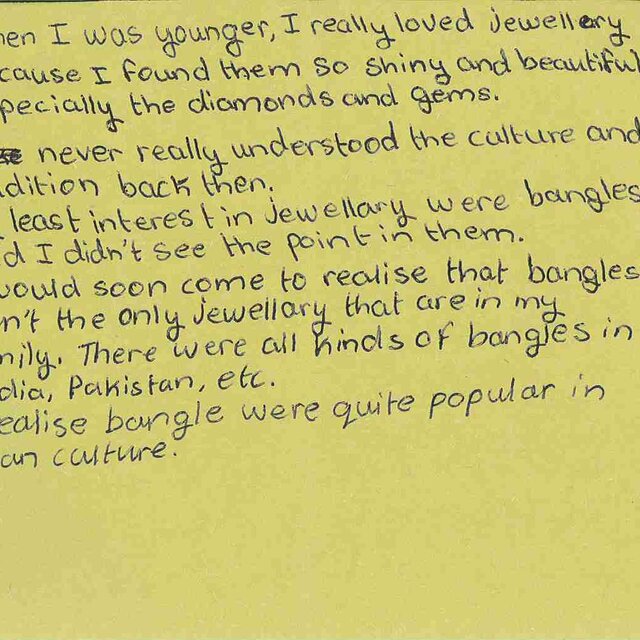 hen I was younger, I really loved jewellery
cause I found them so shiny and beautiful
pecially the diamonds and gems.
never really understood the culture and
dition back then.
least interest in jewellary were bangles
d I didn't see the point in them.
would soon come to realise that bangles
n't the only jewellary that are in my
mily. There were all kinds of bangles in
dia, Pakistan, etc.
ealise bangle were quite popular in
an culture.